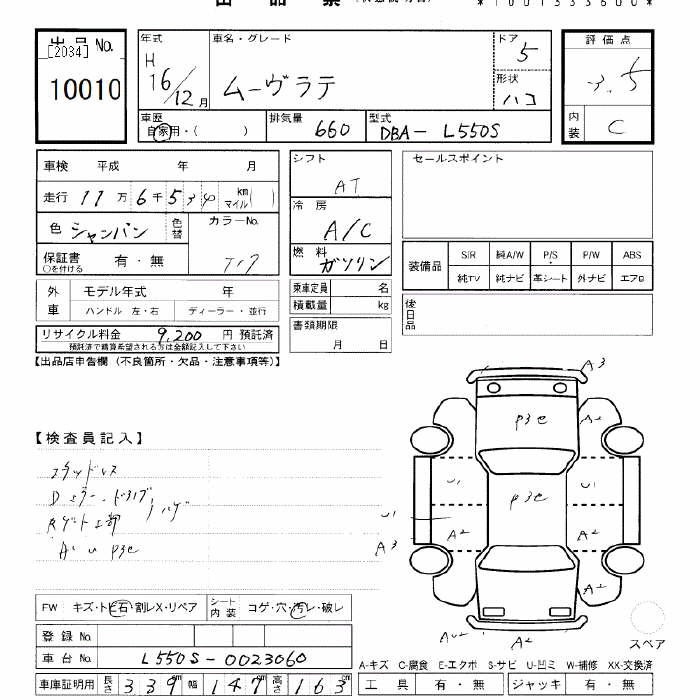 出品票
*1001333600*
出品 No.
[2034]
10010
年式 H 16/12 月
車名・グレード ムーヴラテ
ドア 5
形状 ハコ
評価点 3.5
内装 C
車歴 自家用・( )
排気量 660
型式 DBA- L550S
車検 平成 年 月
走行 11万 6千 5 km マイル( )
色 シャンパン 色替 カラーNo. T17
保証書 有・無
○を付ける
シフト AT
冷房 A/C
燃料 ガソリン
セールスポイント
装備品 S/R 純A/W P/S P/W ABS
純TV 純ナビ 革シート 外ナビ エアロ
外車 モデル年式 年
ハンドル 左・右 ディーラー・並行
乗車定員 名
積載量 kg
後日品
リサイクル料金 9,200 円 預託済
預託済で精算希望される方は金額記入して下さい
書類期限 月 日
【出品店申告欄 (不良箇所・欠品・注意事項等)】
【検査員記入】
スタッドレス
Dミラー・ドアノブ ハゲ
Rゲート上部
A U P3e
A3
A2
A2
P3e
U1
U1
P3e
U1
A3
A2
A2
A2
A2
スペア
FW キズ・トビ石・割レX・リペア シート内装 コゲ・穴・汚レ・破レ
登録 No.
車台 No. L550S-0023060
A-キズ C-腐食 E-エクボ S-サビ U-凹ミ W-補修 XX-交換済
車庫証明用 長さ 339 cm 幅 147 cm 高さ 163 cm
工具 有・無 ジャッキ 有・無